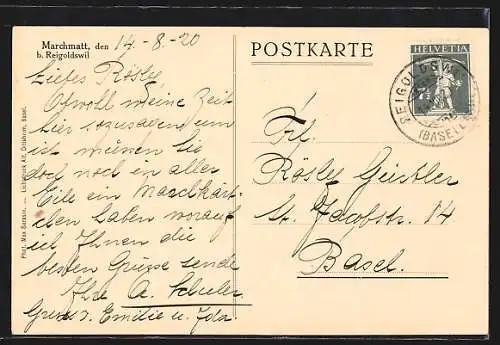 Marchmatt, den 14-8-20
b. Reigoldswil
Liebes Rösly,
Obwohl meine Zeit
hier sozusagen um
ist müssen Sie
doch noch in aller
Eile ein Marchkärt-
chen haben worauf
ich Ihnen die
besten Grüsse sende
Ihre A. Schuler
Gruss v. Emilie u. Ida.
Phot. Max Bersson. — Lichtdruck Alf. Ditisheim, Basel.
POSTKARTE
HELVETIA
REIGOLDSWIL
(BASELL
Frl.
Rösly Geistler
St. Jacobstr. 14
Basel.